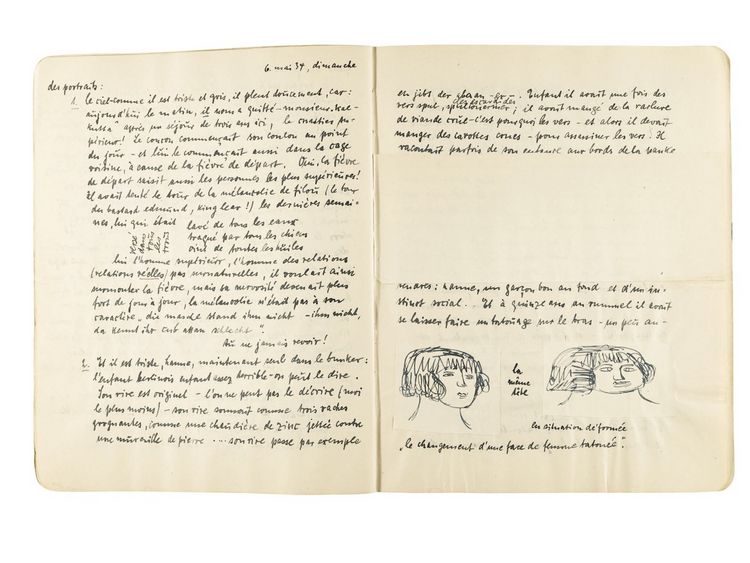 6. mai 34, dimanche
des portraits:
1. le ciel - comme il est triste et gris, il pleut doucement, car:
aujourd'hui le matin, il nous a quitté - monsieur "kal-
kutta" après un séjour de trois ans ici, le cuistier su-
périeur! le coucou commençait son coucou au point
du jour - et lui le commençait aussi dans la cage
voisine, à cause de la fièvre de départ. Oui, la fièvre
de départ saisit aussi les personnes les plus supérieures!
Il avait tenté le tour de la mélancolie de filou (le tour
du bastard edmund, king lear!) les dernières semai-
nes, lui qui était lavé de tous les eaux
versé dans tous les trois
traqué par tous les chiens
oint de toutes les huiles
lui l'homme supérieur, l'homme des relations
(relations réelles) pas monaturelles, il voulait ainsi
surmonter la fièvre, mais sa nervosité devenait plus
fort de jour à jour, la mélancolie n'était pas à son
caractère "die maske stand ihm nicht - ihm nicht,
da kennt ihr aber schlecht".
Au ne jamais revoir!
2. Et il est triste, hanne, maintenant seul dans le bunker:
l'enfant berlinois enfant assez terrible - on peut le dire.
Son rire est originel - l'on ne peut pas le décrire (moi
le plus moins) - son rire sonnait comme trois vaches
grognantes, comme une chaudière de zinc jettée contre
une muraille de pierre .... son rire passe par exemple
en jibs der
des écarts des
Enfant il avait une fois des
vers spul, ; il avait mangé de la raclure
de viande crue - c'est pourquoi les vers - et alors il devait
manger des carottes crues - pour assassiner les vers. Il
racontait parfois de son enfance aux bords de la panke
: hanne, un garçon bon au fond et d'un in-
stinct social. Et à quinze ans au rummel il avait
se laisser faire un tatouage sur le bras - un peu au-
la
même
tête
en situation déformée
"le changement d'une face de femme tatouée".